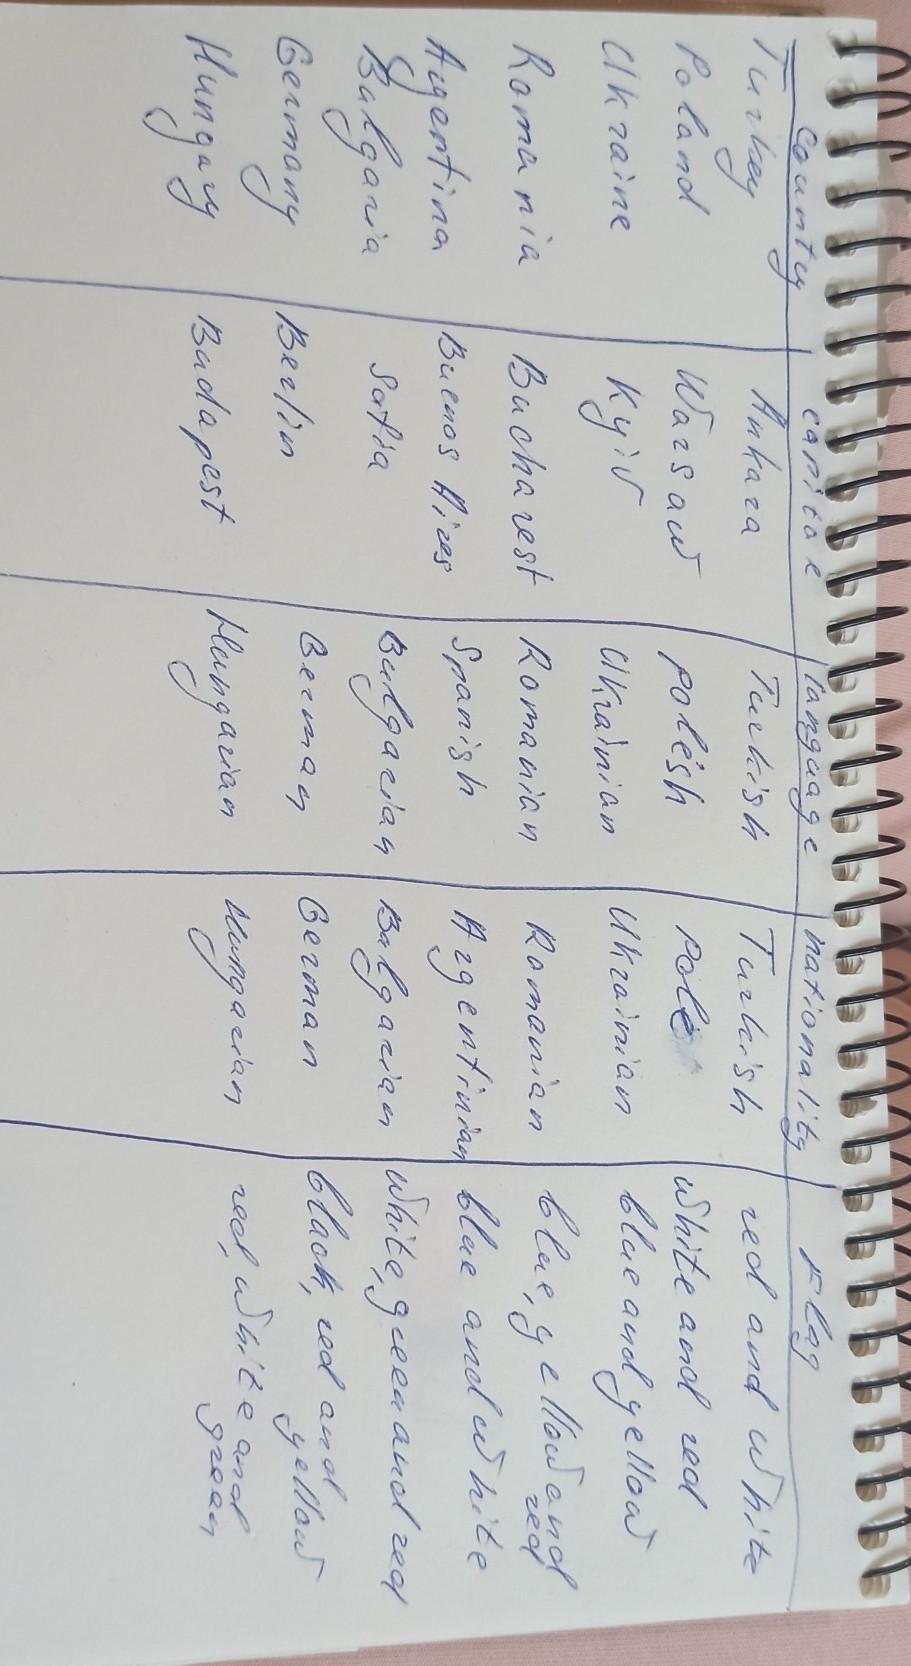 county canitae language nationality Flag
Turkey Ankara Turkish Turkish red and white
Poland Warsaw polesh Pole white and red
Ukraine Kyiv Ukrainian Ukrainian blue and yellow
Romania Bucharest Romanian Romanian blue, yellow and
red
Argentina Buenos Aires Spanish Argentinian blue and white
Bulgaria Sofia Bulgarian Bulgarian white, green and red
Germany Berlin German German black, red and
yellow
Hungary Budapest Hungarian Hungarian red, white and
green